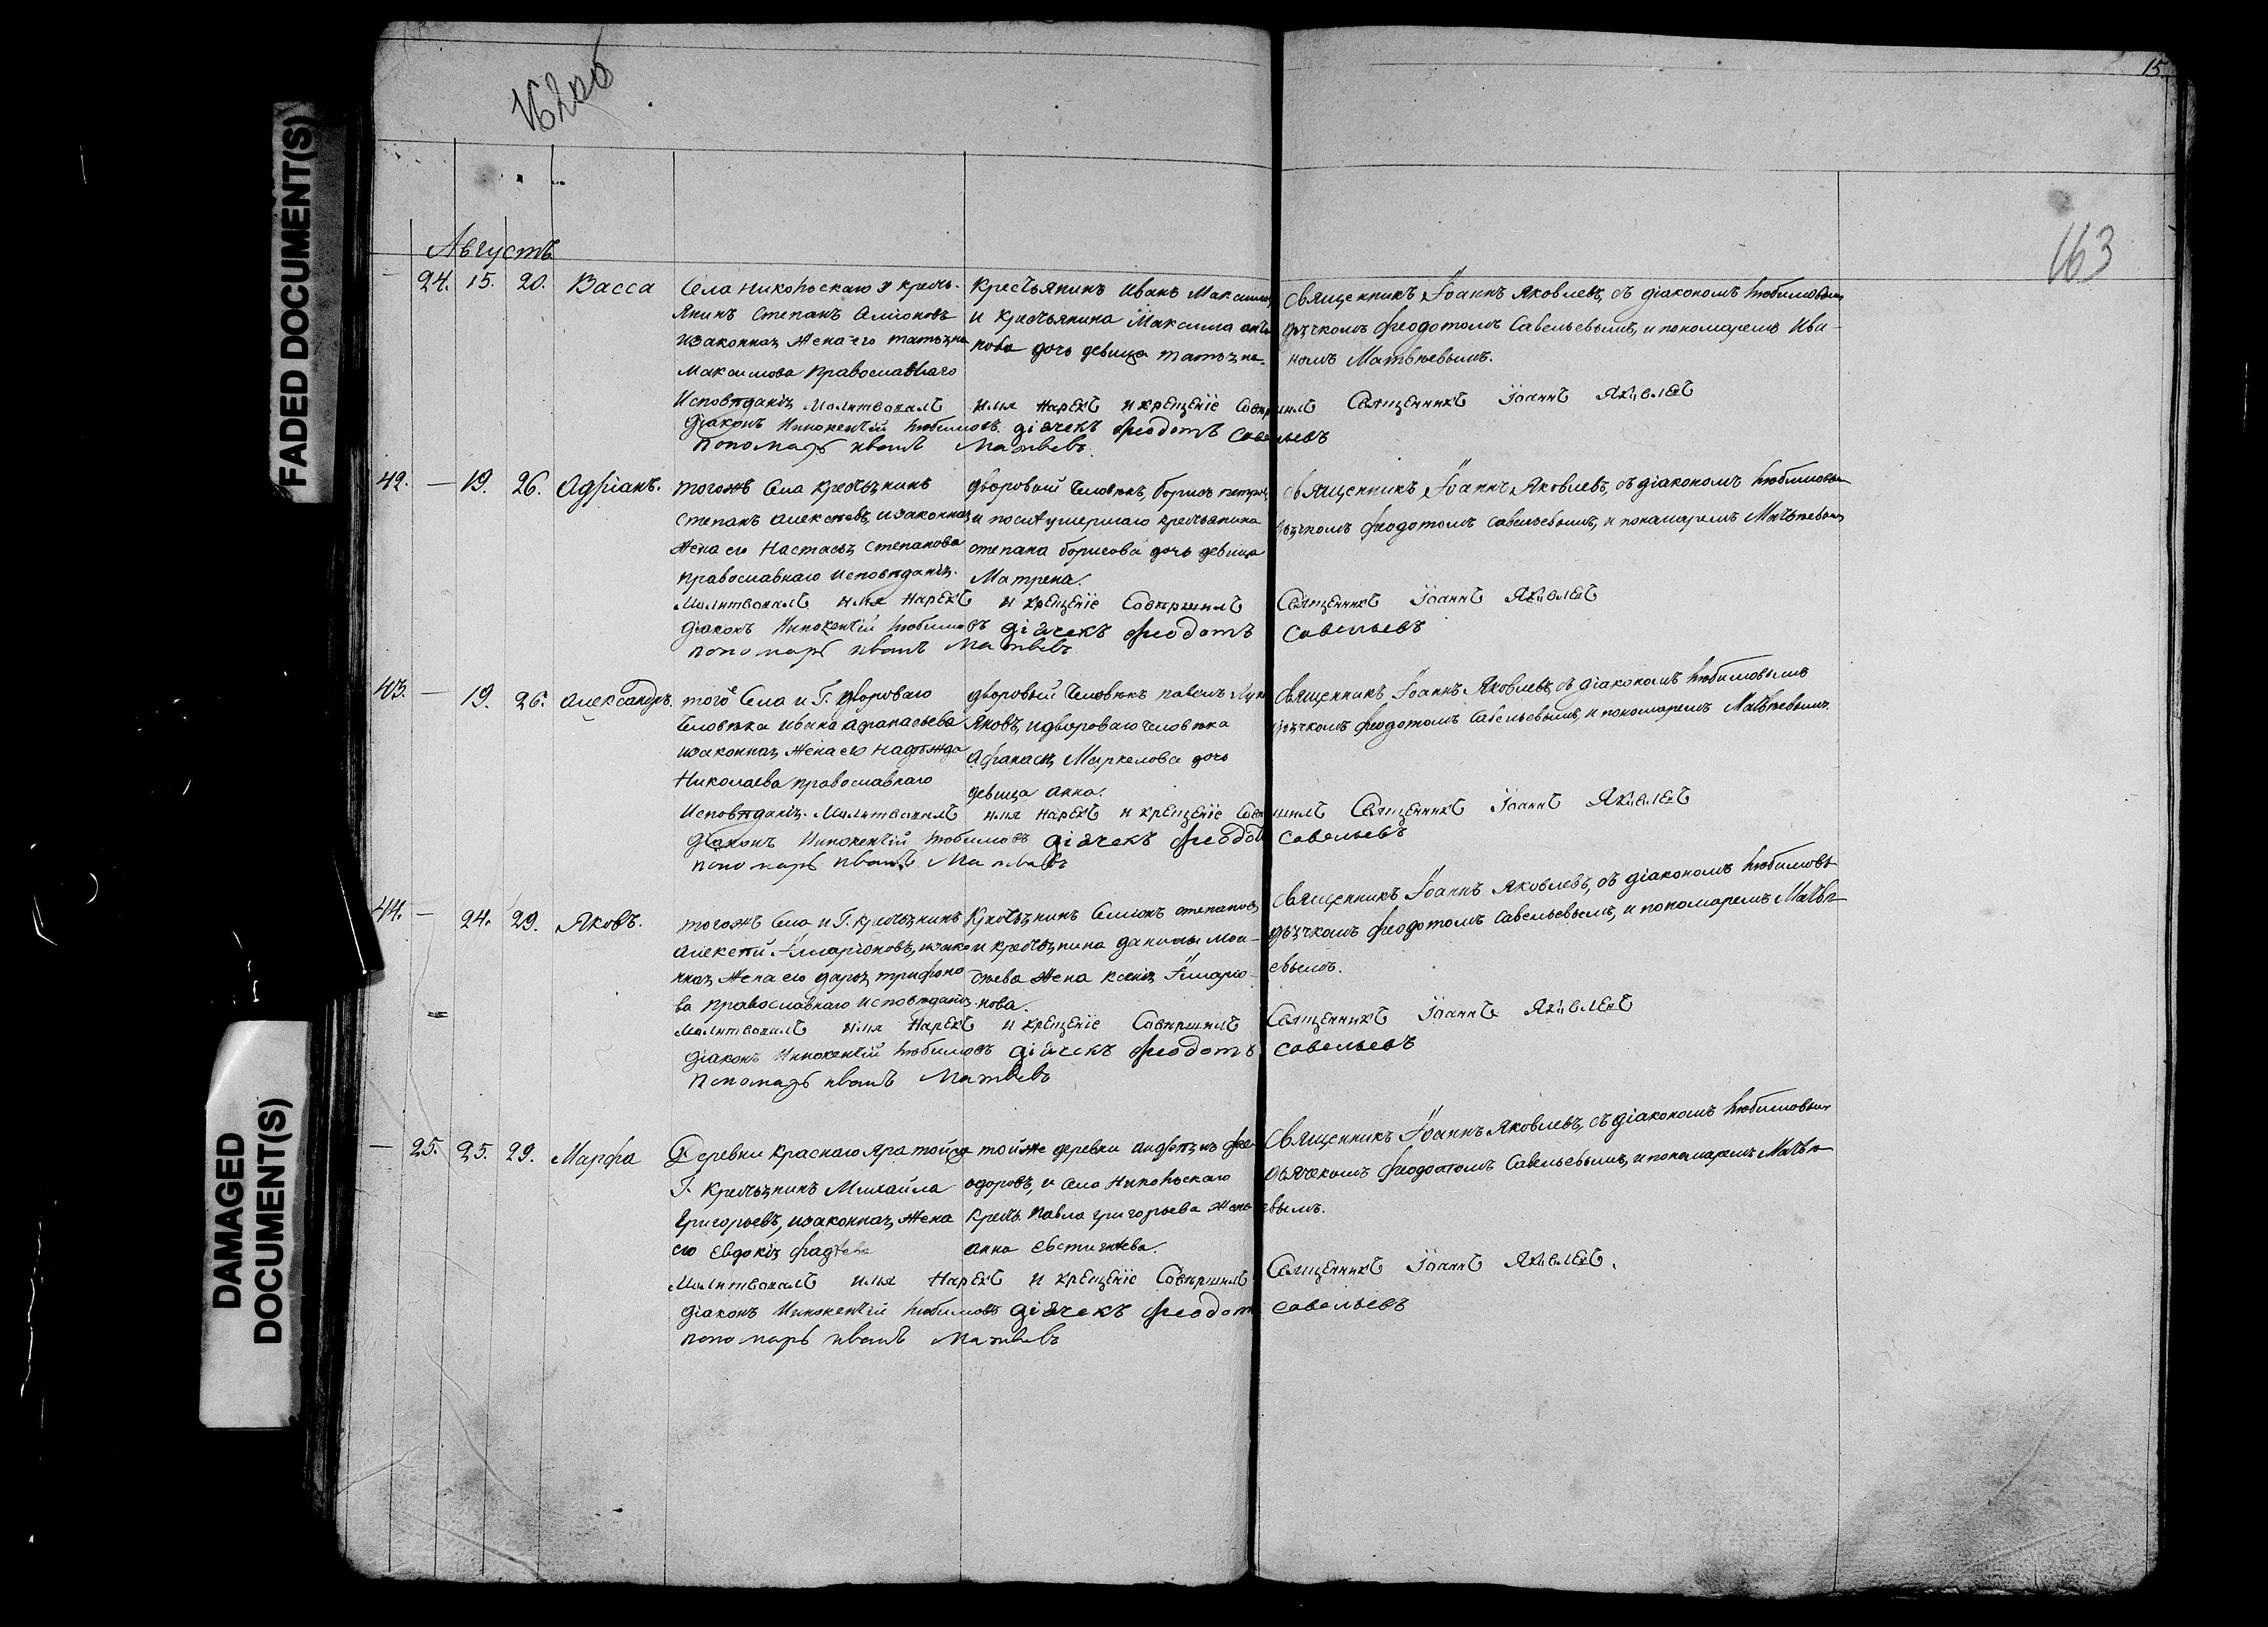 162об
15.
163
FADED DOCUMENT(S)
DAMAGED
DOCUMENT(S)
Августъ
24. 15. 20. Васса
Села Никольскаго крес-
янинъ Степанъ Симіоновъ
изаконная жена его татьяна
Максимова Православнаго
Исповѣданія
Крестьянинъ Иванъ Максимовъ
и крестьянина Максима
дочь девица татьяна
священникъ Іоаннъ Яковлевъ, съ діакономъ Любимовым
дьячкомъ феодотомъ Савельевымъ, и пономаремъ Ива-
номъ Матвѣевымъ.
Молитвовалъ имя нарекъ и крещеніе Совершилъ Священникъ Іоаннъ Яковлевъ
Діаконъ Иннокентій Любимовъ. діячекъ феодотъ Савельевъ
пономарь иванъ Матвевъ.
42. — 19. 26. Адріанъ.
тогожъ Села крестьянинъ
Степанъ алексѣевъ, изаконная
жена его Настасья Степанова
православнаго исповѣданія.
дворовой Человѣкъ, борисъ петровъ
и послѣ умершаго крестьянина
степана борисова дочь девица
Матрена.
священникъ Іоаннъ Яковлевъ, съ діакономъ Любимовым
дьячкомъ феодотомъ савельевымъ, и понамаремъ Матвѣевым
Молитвовалъ имя нарекъ и крещеніе Совершилъ Священникъ Іоаннъ Яковлевъ
діаконъ Иннокентій Любимовъ діячекъ феодотъ Савельевъ
пономарь иванъ Матвевъ
43. — 19. 26. александръ.
того Села и Г. двороваго
Человѣка ивана афанасьева
изаконная жена его надѣжда
Николаева православнаго
Исповѣданія.
дворовый Человѣкъ павелъ
Яновъ, и двороваго человѣка
Афанасія Маркелова дочь
девица анна.
священникъ Іоаннъ Яковлевъ, съ діакономъ Любимовымъ
дьячкомъ феодотомъ Савельевымъ, и пономаремъ Матвѣевымъ.
Молитвовалъ имя нарекъ и крещеніе Совершилъ Священникъ Іоаннъ Яковлевъ
діаконъ Иннокентій Любимовъ діячекъ феодотъ Савельевъ
пономарь иванъ Матвевъ
44. — 24. 29. Яковъ.
тогожъ Села и Г. крестьянинъ
алексѣй Иларіоновъ, изако
нная жена его дарья трифоно
ва православнаго исповѣданія.
Крестьянинъ Симіонъ степановъ
и крестьянина данилы Мои-
сѣева жена ксенія Иларіо-
нова.
священникъ Іоаннъ Яковлевъ, съ діакономъ Любимовъ
дьячкомъ феодотомъ Савельевымъ, и пономаремъ Матвѣ-
евымъ.
Молитвовалъ имя нарекъ и крещеніе Совершилъ Священникъ Іоаннъ Яковлевъ
діаконъ Иннокентій Любимовъ діячекъ феодотъ Савельевъ
пономарь иванъ Матвевъ
— 25. 25. 29. Марфа
Деревни краснаго яра тойже
Г. крестьянинъ Михайла
Григорьевъ, изаконная жена
его Евдокія фадѣева
тойже деревни андрѣянъ фео-
одоровъ, и Села Никольскаго
крест. Павла григорьева жена
анна Евстигнѣева.
священникъ Іоаннъ Яковлевъ, съ діакономъ Любимовым
дьячекомъ феодотомъ Савельевымъ, и пономаремъ Матвѣ-
евымъ.
Молитвовалъ имя нарекъ и крещеніе Совершилъ Священникъ Іоаннъ Яковлевъ.
діаконъ Иннокентій Любимовъ діячекъ феодотъ Савельевъ
пономарь иванъ Матвевъ